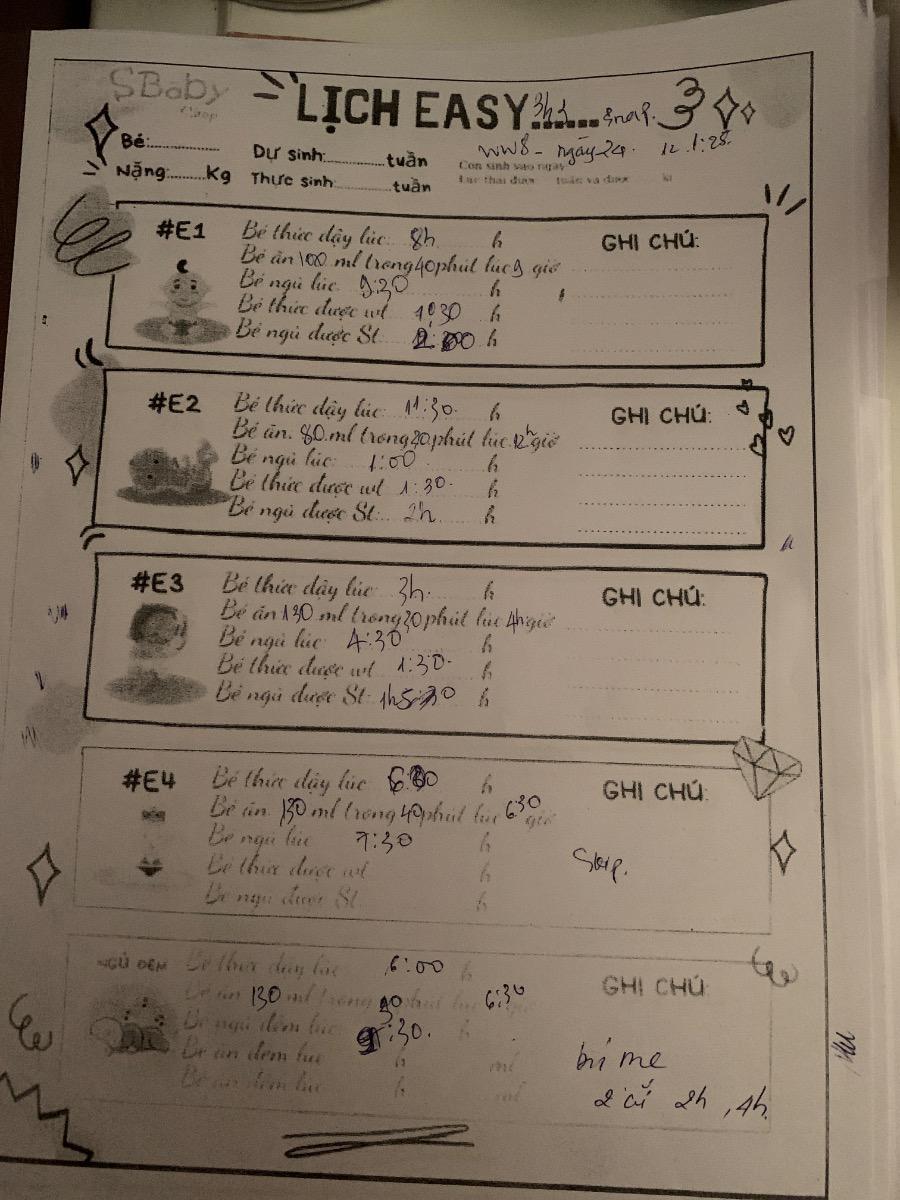 SBaby
LỊCH EASY 3h1 3nap. 3
Bé: Dự sinh: tuần WW8 - ngày 24. 12.1:25.
Nặng: Kg Thực sinh: tuần Con sinh vào ngày
Lúc thai được tuần và được
#E1 Bé thức dậy lúc: 8h h GHI CHÚ:
Bé ăn 100 ml trong 40 phút lúc 9 giờ
Bé ngủ lúc: 9:30 h
Bé thức được wt 1:30 h
Bé ngủ được St: h
#E2 Bé thức dậy lúc: 11:30. h GHI CHÚ:
Bé ăn. 80 ml trong 20 phút lúc 12h giờ
Bé ngủ lúc: 1:00 h
Bé thức được wt 1:30. h
Bé ngủ được St: 2h h
#E3 Bé thức dậy lúc: 3h. h GHI CHÚ:
Bé ăn 130 ml trong 20 phút lúc 4h giờ
Bé ngủ lúc: 4:30 h
Bé thức được wt 1:30. h
Bé ngủ được St: h
#E4 Bé thức dậy lúc h GHI CHÚ:
Bé ăn. 130 ml trong 40 phút lúc 6:30 giờ
Bé ngủ lúc 7:30 h
Bé thức được wt h Skip.
Bé ngủ được St h
NGỦ ĐÊM Bé thức dậy lúc 6:00 h GHI CHÚ:
Bé ăn 130 ml trong 30 phút lúc 6:30 giờ
Bé ngủ đêm lúc :30. h
Bé ăn đêm lúc h ml bú mẹ
Bé ăn đêm lúc h ml 2 cữ 2h, 4h